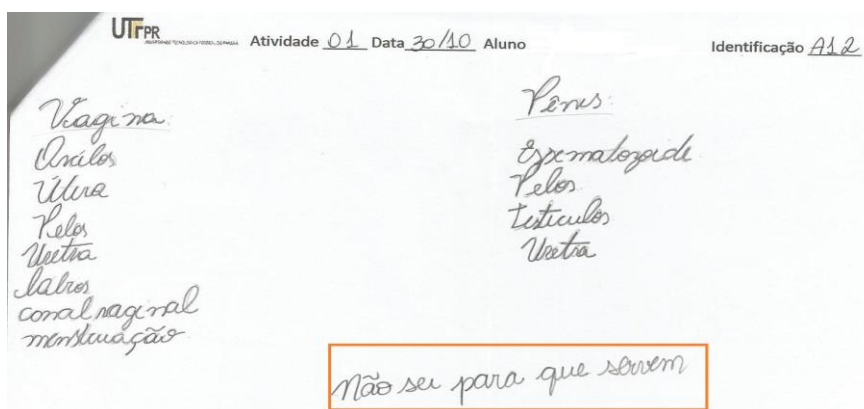 UTFPR
Atividade 01 Data 30/10 Aluno Identificação A12
Vagina:
Pelos
Uretra
labios
canal vaginal
menstruação
Pênis:
Espematozoide
Pelos
Testiculos
Uretra
Não sei para que servem